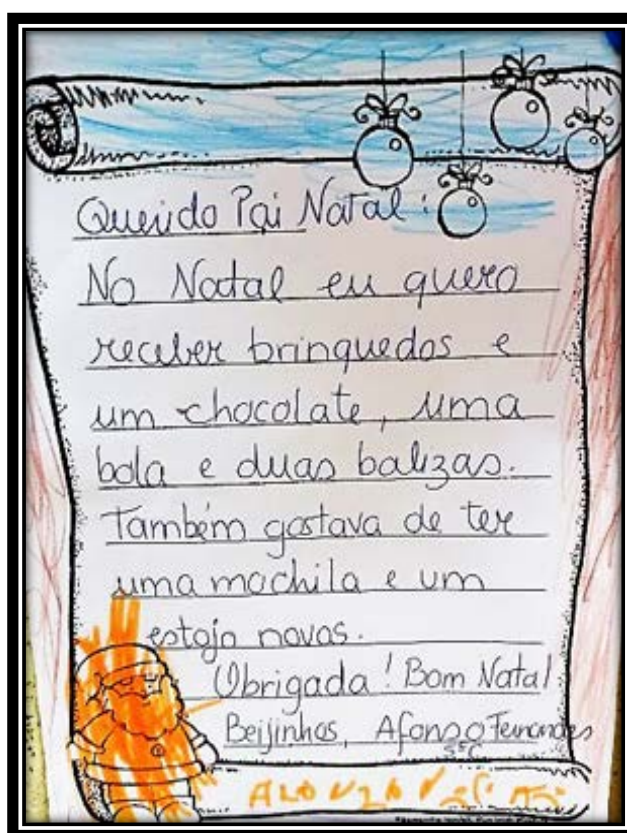 Querido Pai Natal:
No Natal eu quero
receber brinquedos e
um chocolate, uma
bola e duas balizas.
Também gostava de ter
uma mochila e um
estojo novos.
Obrigada! Bom Natal
Beijinhos, Afonso Fernandes
5ºC